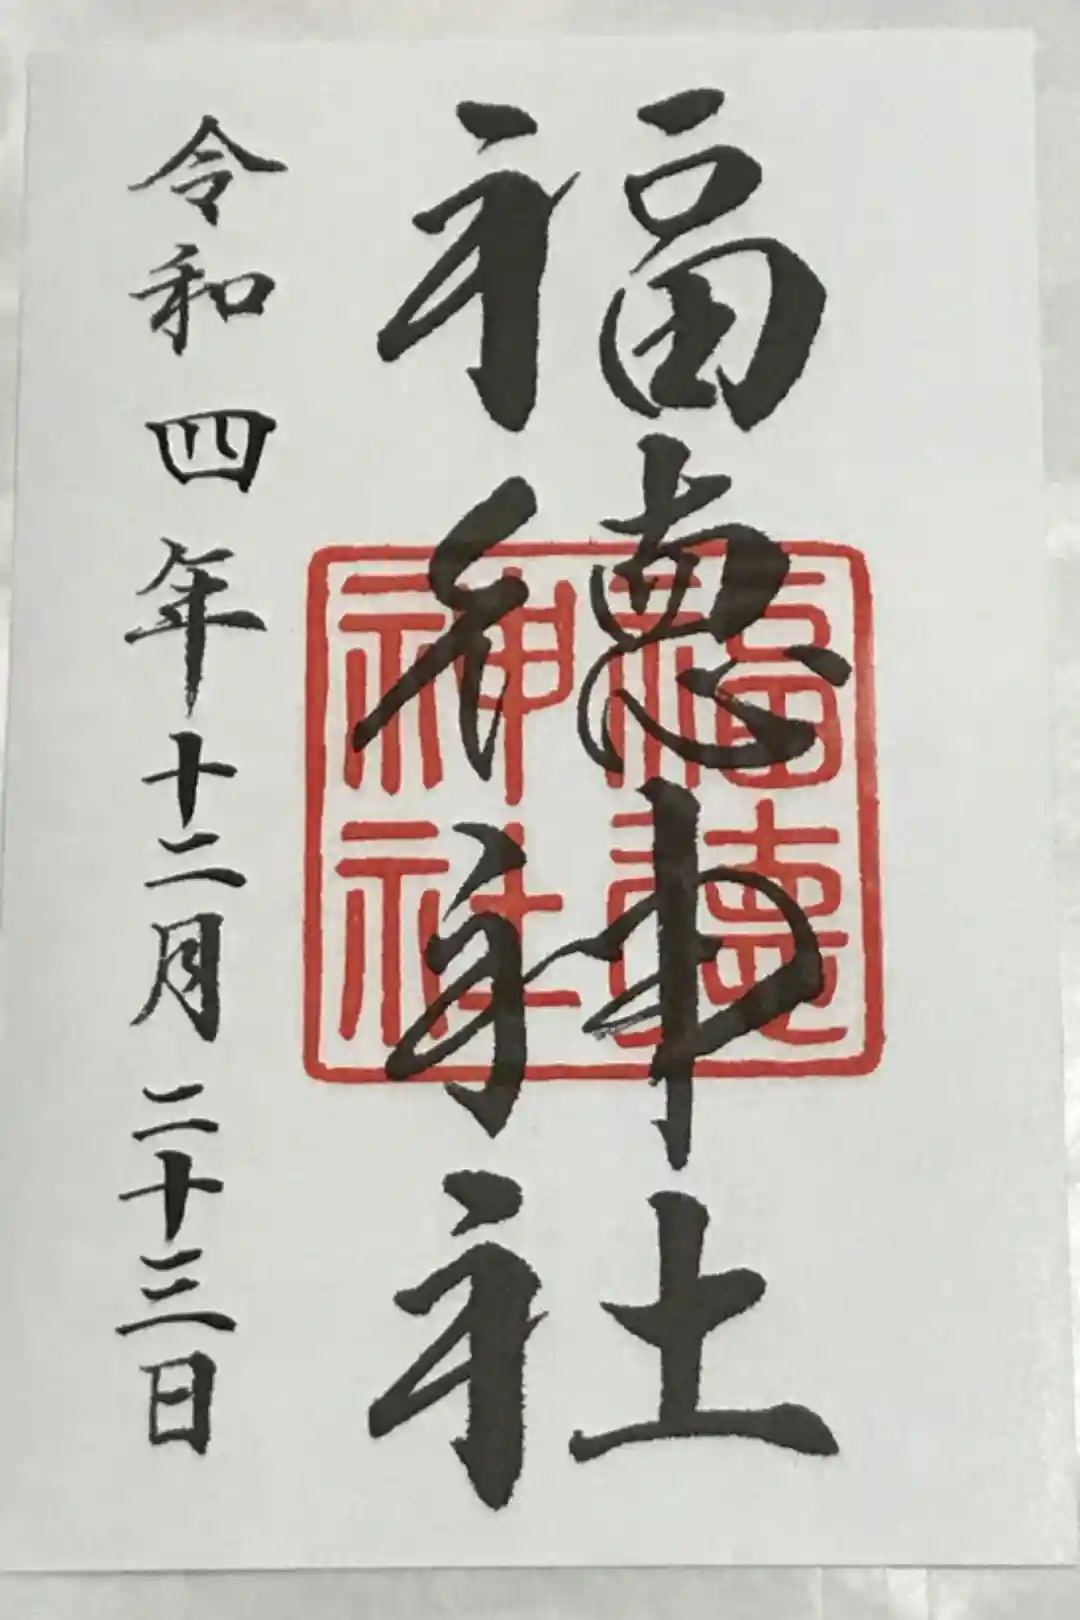 福徳神社
福徳神社
令和四年十二月二十三日